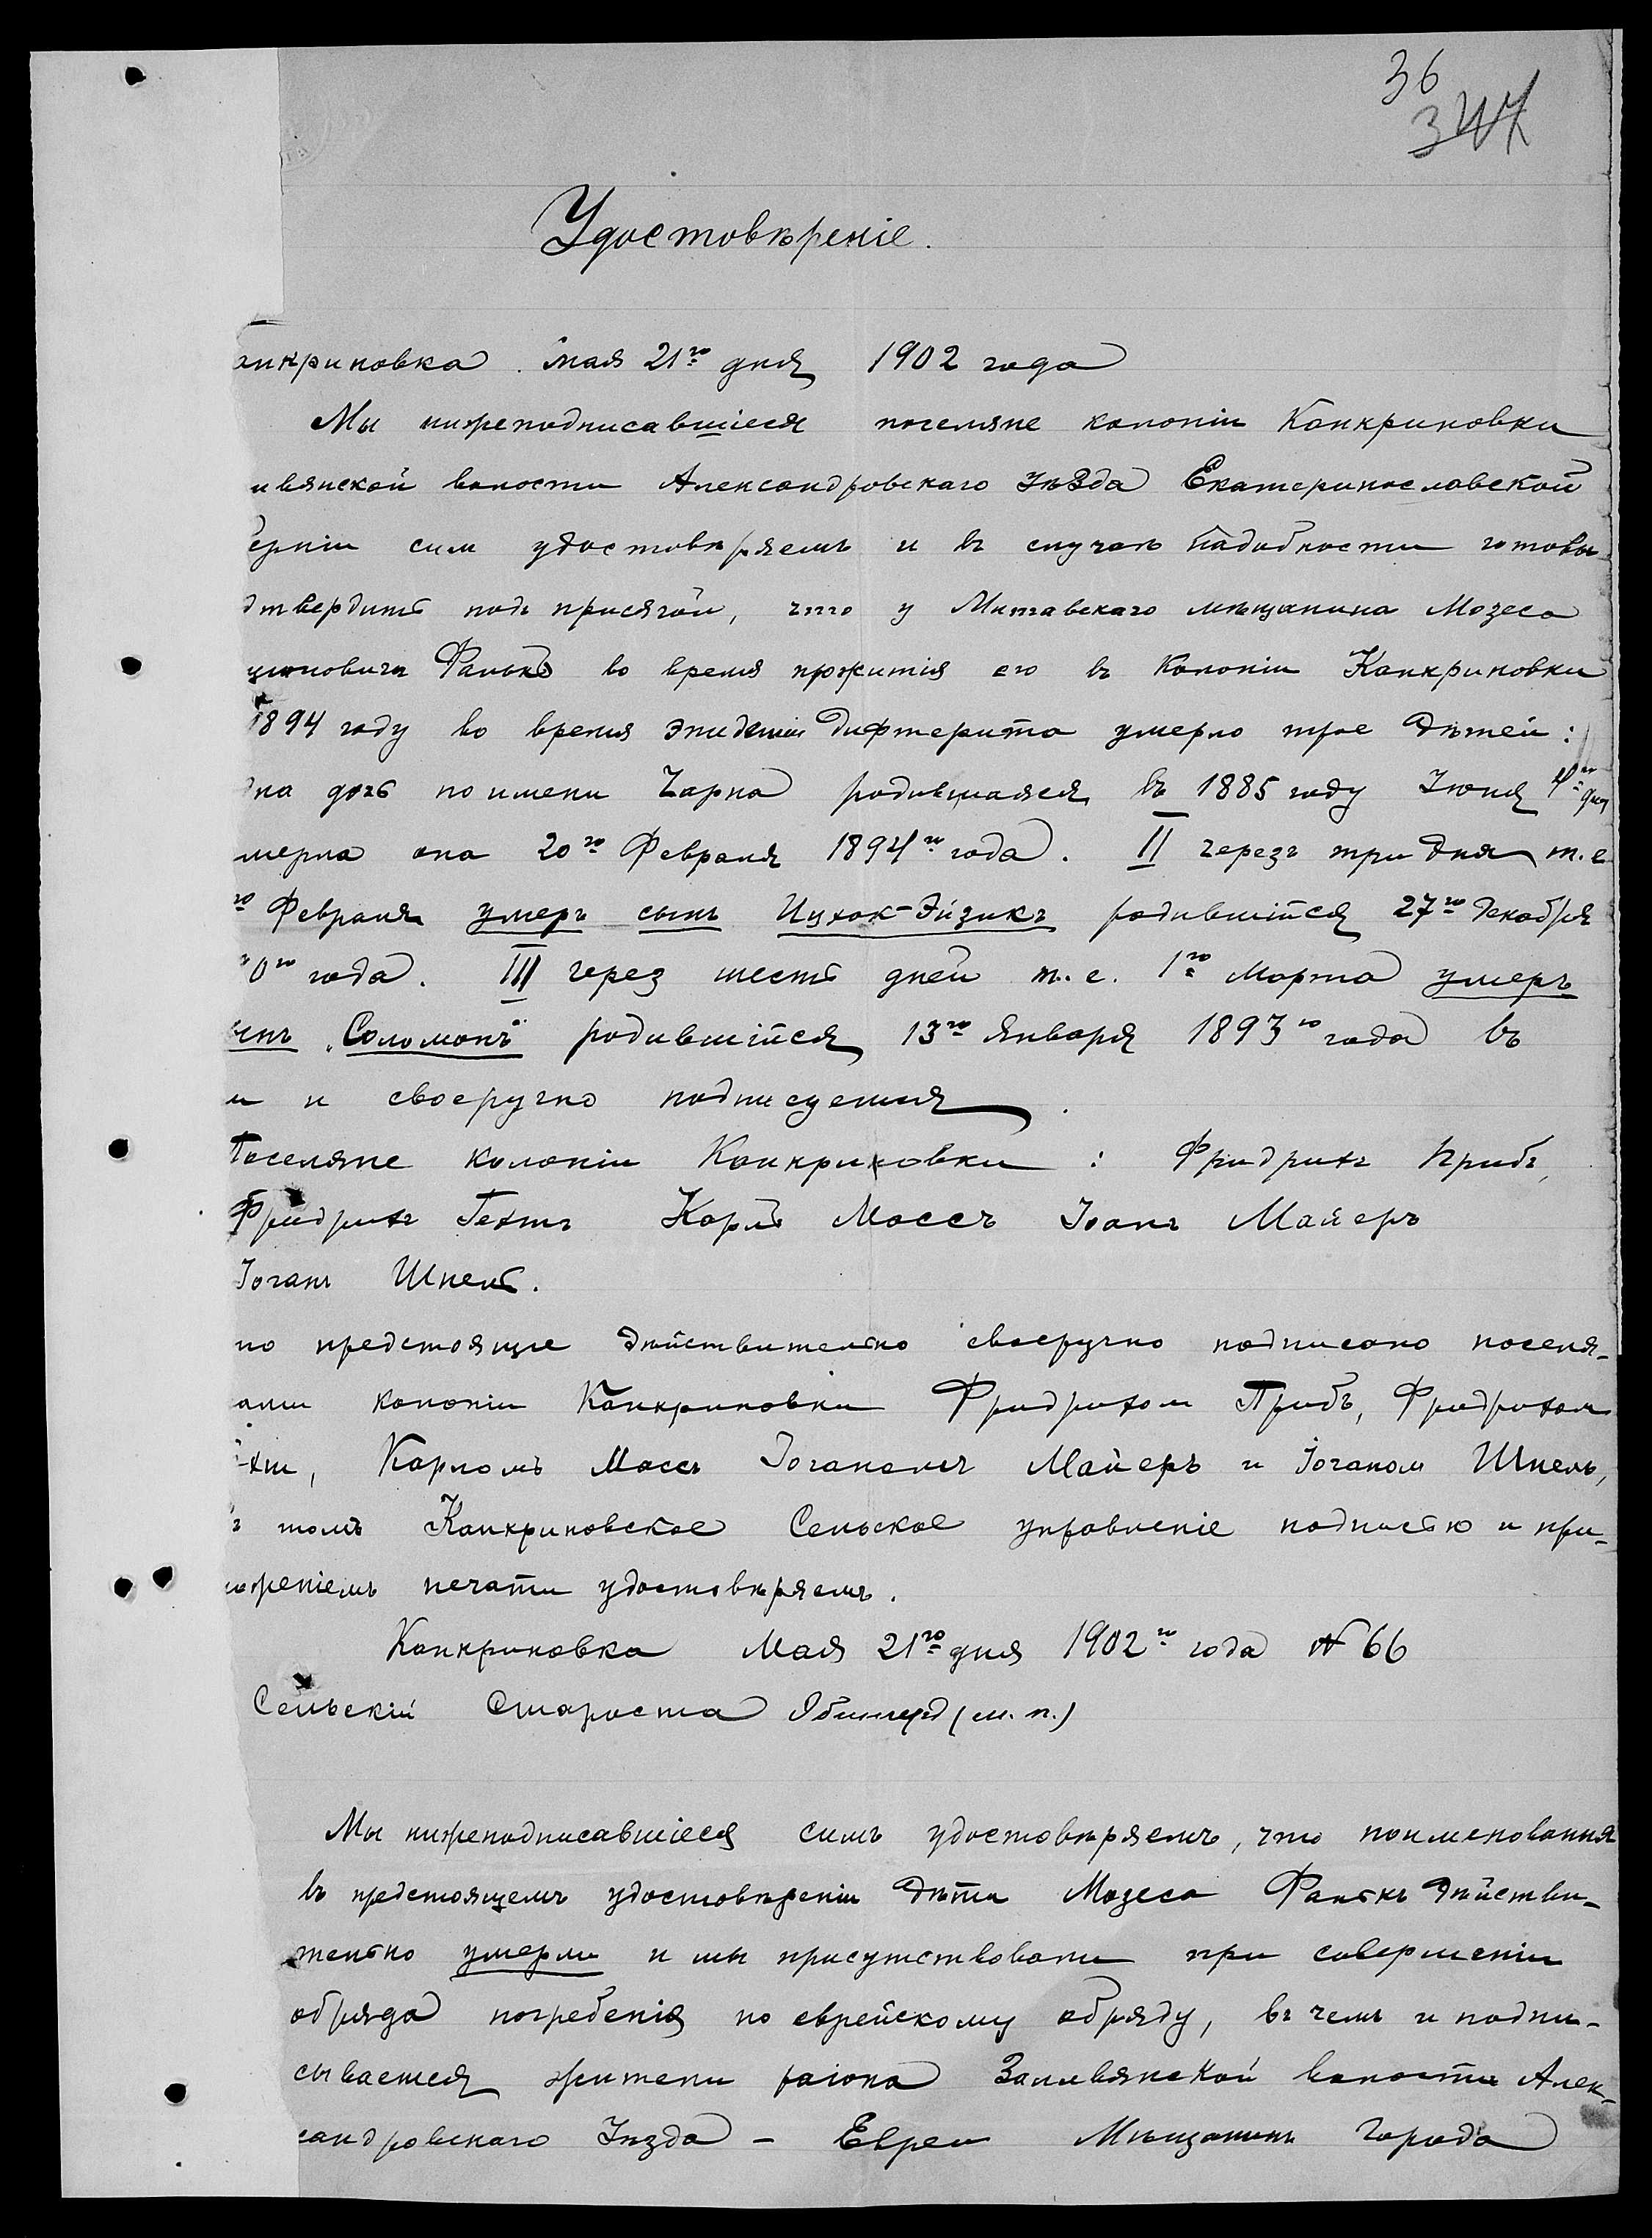 36
347
Удостовѣреніе.
анкриновка. Мая 21го дня 1902 года
Мы нижеподписавшіеся поселяне колоніи Канкриновки
ивянской волости Александровскаго уѣзда Екатеринославской
ерніи сим удостовѣряемъ и въ случаѣ надобности готовы
дтвердить подъ присягой, что у Митавскаго мѣщанина Мозеса
Фалькъ во время прожитія его въ колоніи Канкриновки
1894 году во время эпидеміи дифтерита умерло трое дѣтей:
дна дочь по имени Чарна родившаяся въ 1885 году Іюня 4го дня
мерла она 20го Февраля 1894го года. II через три дня т.е.
го Февраля умеръ сынъ Ицхок-Эйзикъ родившійся 27го Декабря
0го года. III через шесть дней т.е. 1го Марта умеръ
ынъ „Соломонъ" родившійся 13го Января 1893го года въ
м и своеручно подписуемся.
Поселяне колоніи Канкриновки: Фридрихъ Прибъ,
Фридрихъ Гехтъ Карлъ Моссъ Іоанъ Майеръ
Іоганъ Шпель.
то предстоящие дѣйствительно своеручно подписано поселя-
ами колоніи Канкриновки Фридрихом Прибъ, Фридрихом
хт, Карломъ Моссъ Іоганомъ Майеръ и Іоганом Шпель,
ъ томъ Канкриновское Сельское управленіе подписью и при-
оженіемъ печати удостовѣряемъ.
Канкриновка Мая 21го дня 1902го года № 66
Сельскій Староста (м.п.)
Мы нижеподписавшіеся симъ удостовѣряемъ, что поименованыя
въ предстоящемъ удостовѣреніи дѣти Мозеса Фалькъ дѣйстви-
тельно умерли и мы присутствовали при совершеніи
обряда погребенія по еврейскому обряду, въ чемъ и подпи-
сываемся жители раіона Заливянской волости Алек-
сандровскаго Уѣзда - Евреи Мѣщанинъ Города